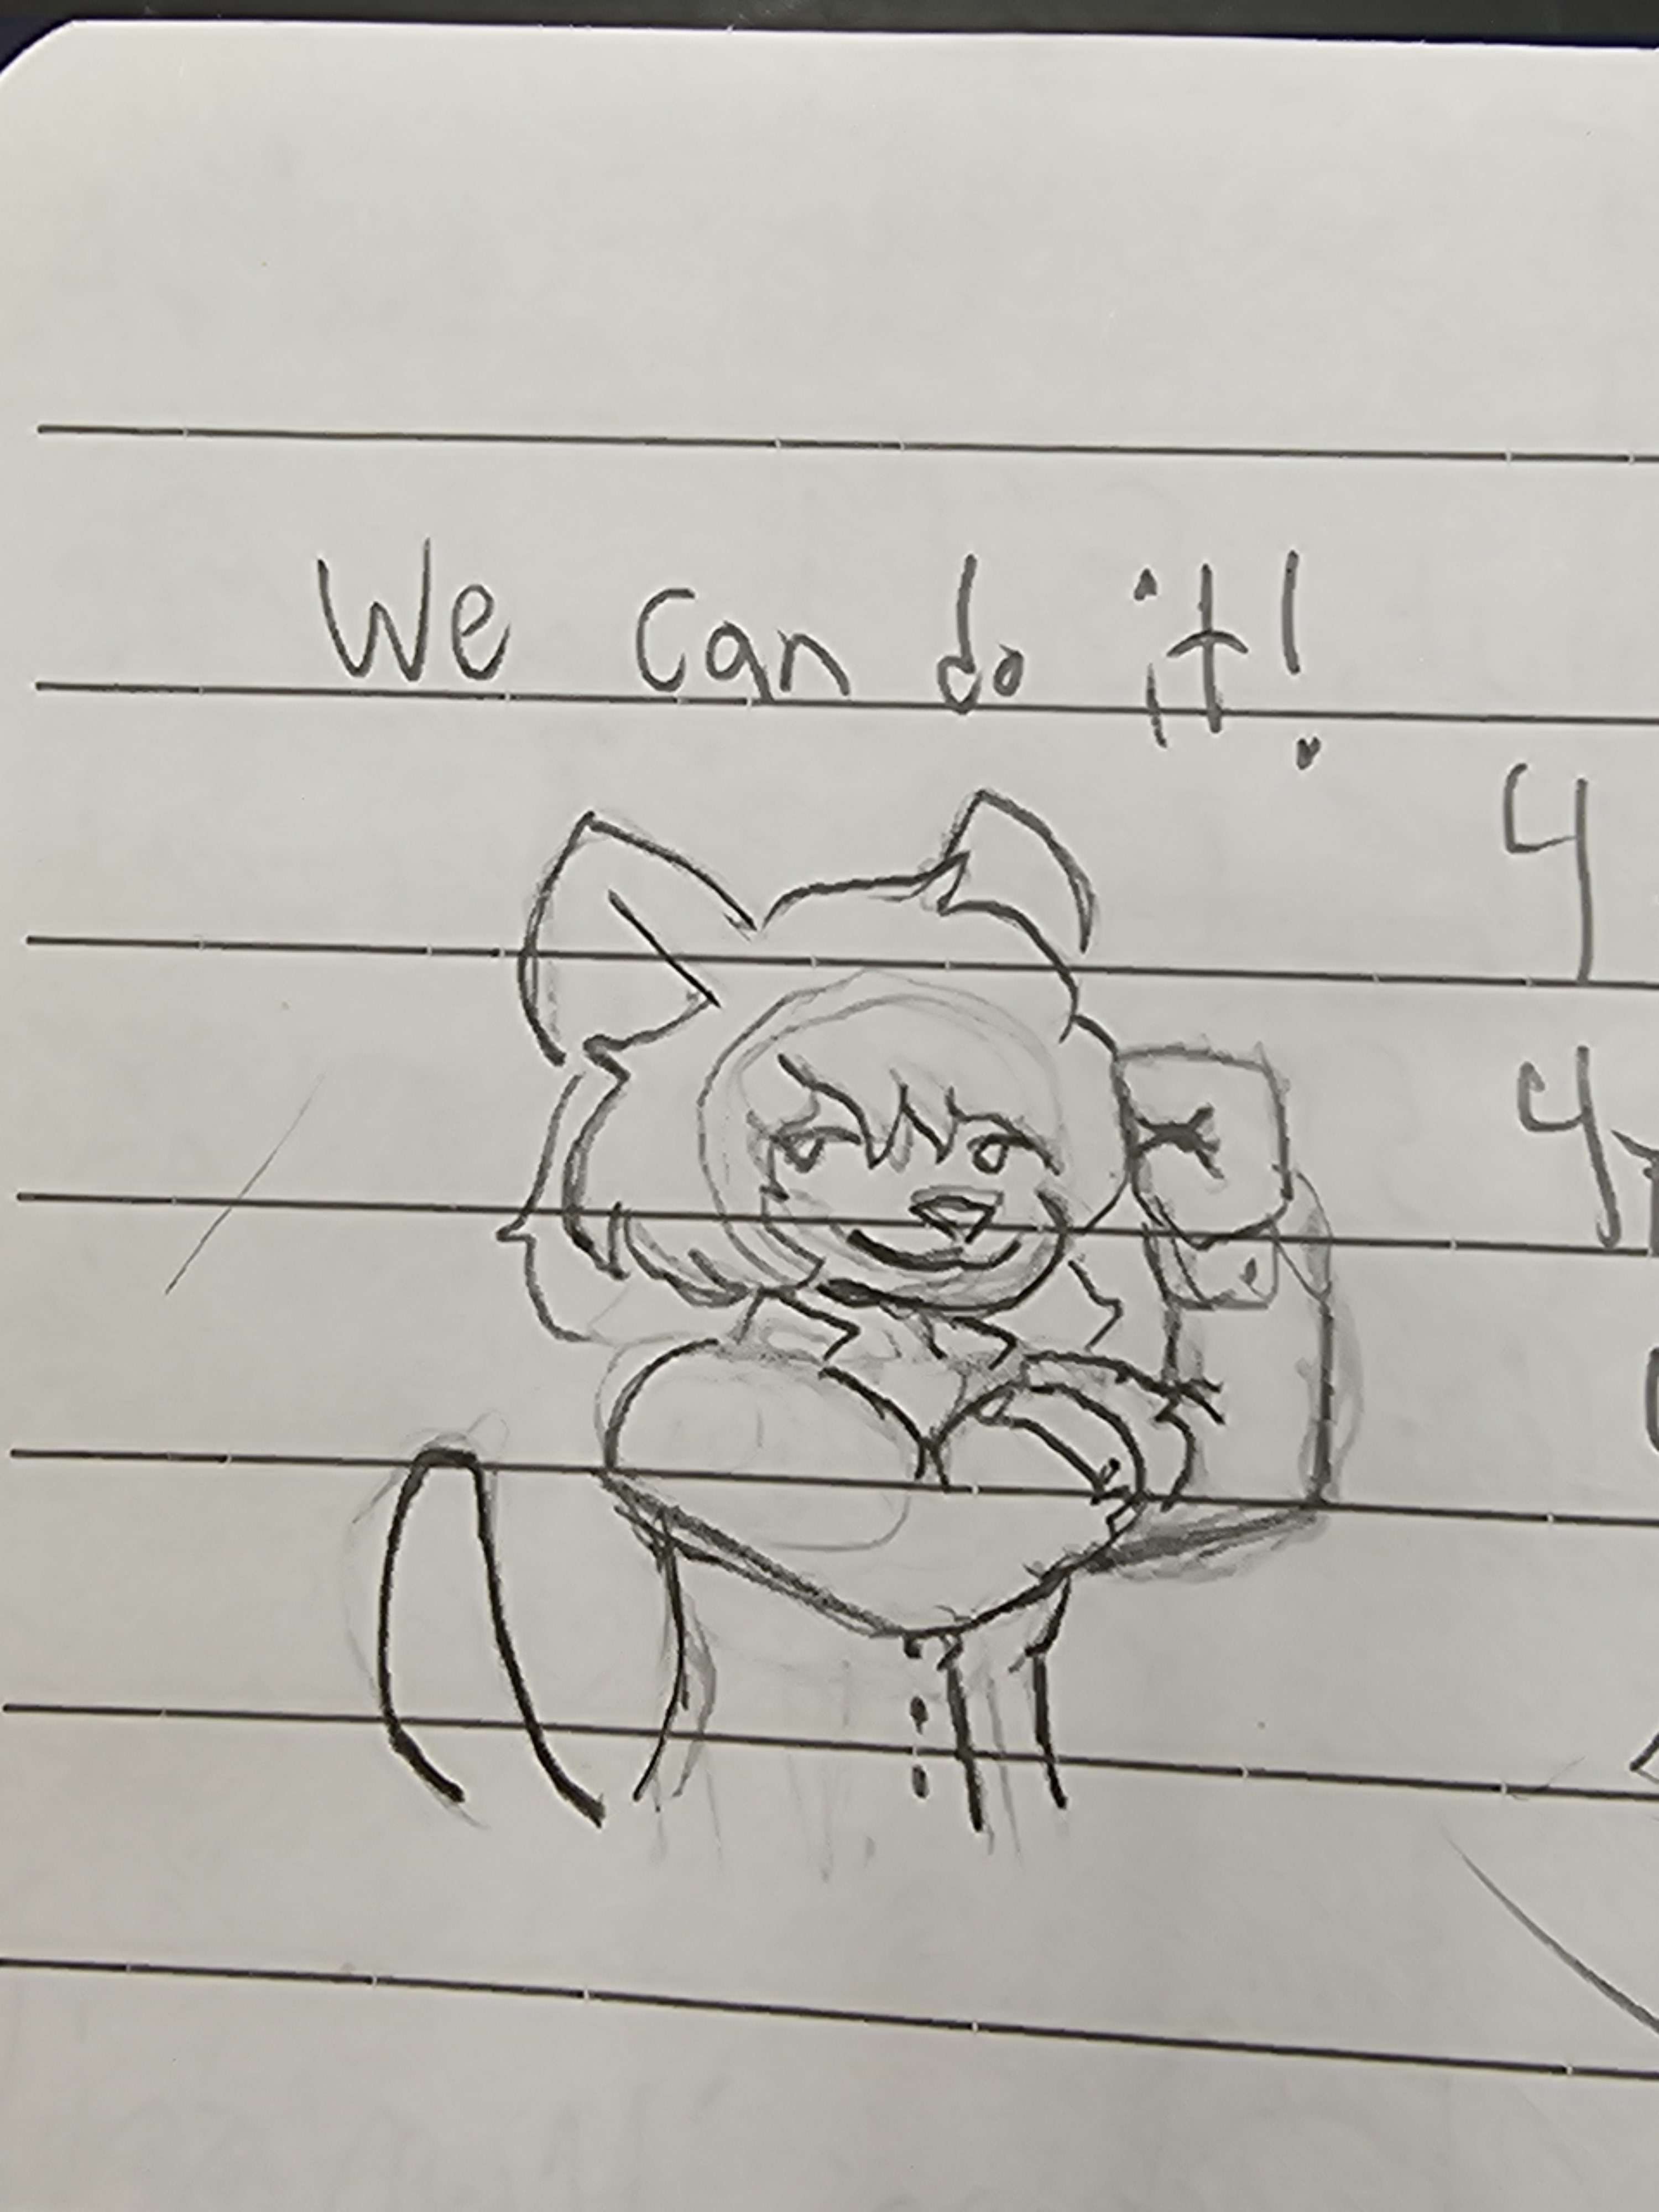 We can do it!
4
4